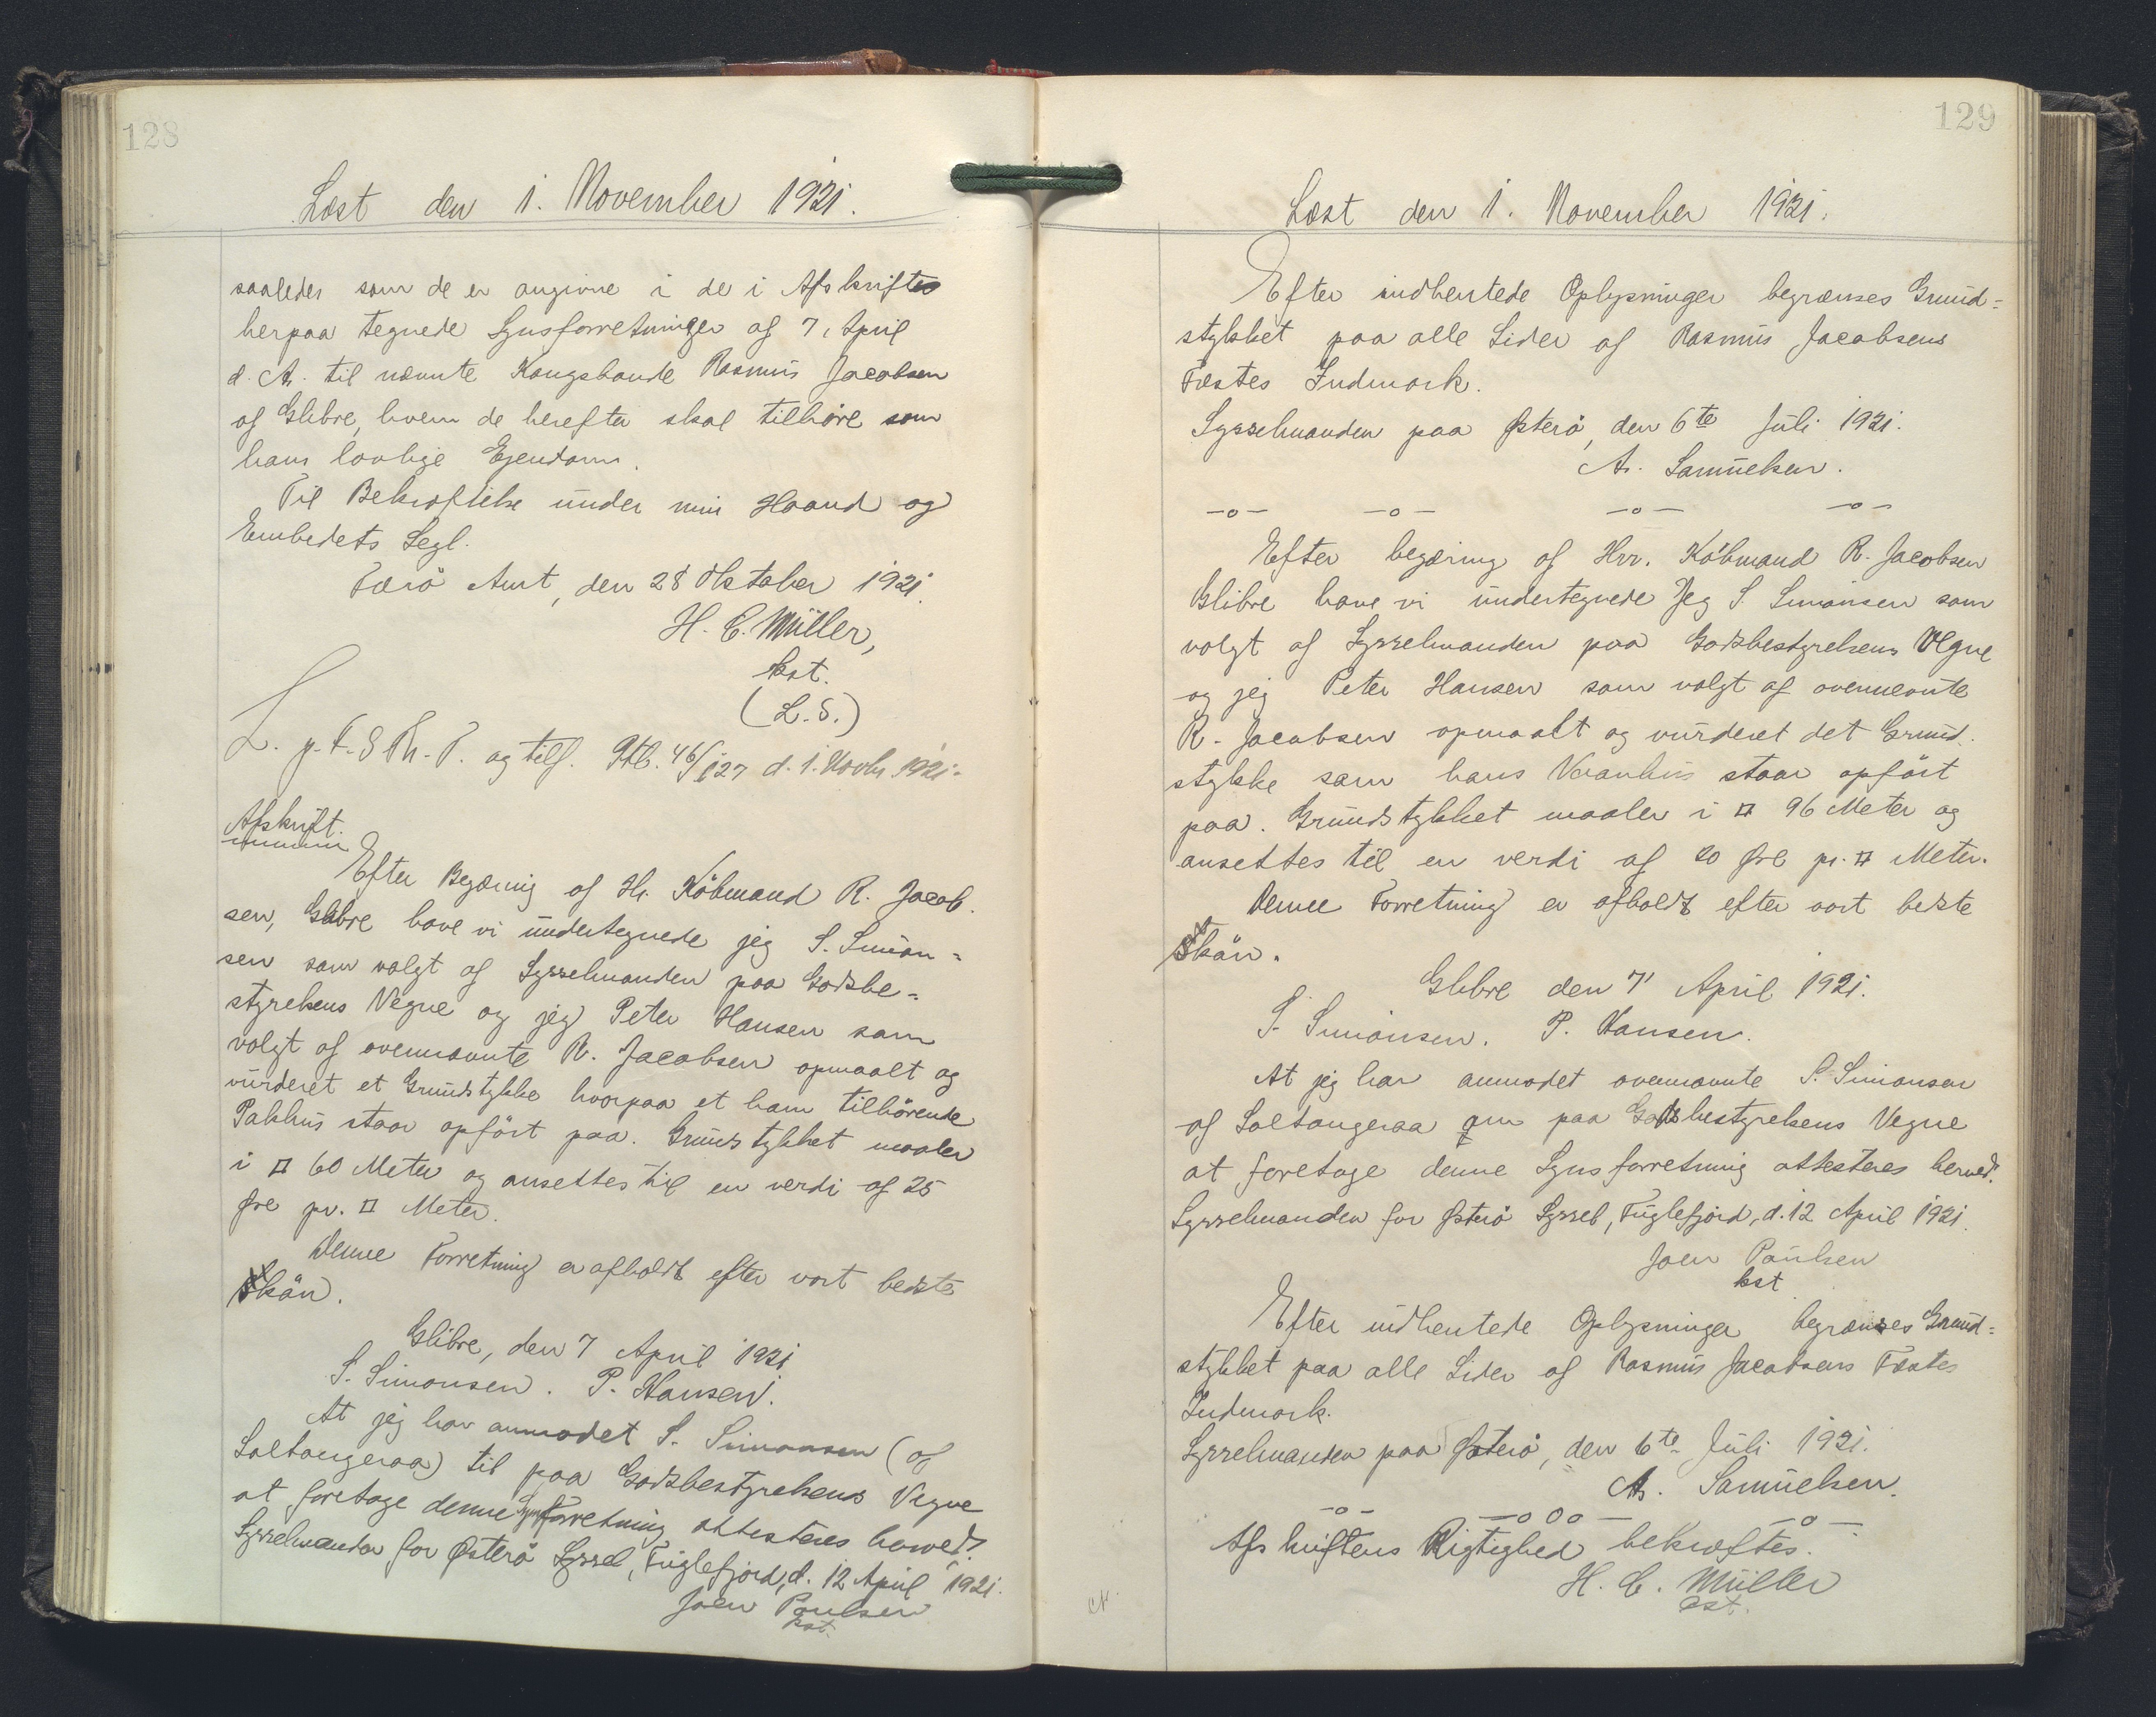 128
Læst den 1. November 1921.
saaledes som de er angivne i de i Afskrifter
herpaa tegnede Synsforretninger af 7, April
d. A. til nævnte Kongsbonde Rasmus Jacobsen
af Glibre, hvem de herefter skal tilhöre som
hans lovlige Ejendom.
Til Bekræftelse under min Haand og
Embedets Segl.
Færö Amt, den 28 Oktober 1921.
H. C. Müller,
kst.
(L.S.)
L. p. F. S Th. P. og tilf. Ptb. 46/127 d. 1. Novbr. 1921.
Afskrift.
Efter Begæring af Hr. Köbmand R. Jacob.
sen, Glibre have vi undertegnede jeg S. Simon=
sen som valgt af Sysselmanden paa Godsbe=
styrelsens Vegne og jeg Peter Hansen som
valgt af ovennævnte R. Jacobsen opmaalt og
vurderet et Grundstykke hvorpaa et ham tilhörende
Pakhus staar opfört paa. Grundstykket maaler
i □ 60 Meter og ansettes til en verdi af 25
Øre pr. □ Meter.
Denne Forretning er afholdt efter vort bedste
Skön.
Glibre, den 7 April 1921
S. Simonsen. P. Hansen.
At jeg har anmodet S. Simonsen (af
Saltangeraa) til paa Godsbestyrelsens Vegne
at foretage denne Synsforretning attesteres herved.
Sysselmanden for Østerö Syssel, Fuglefjord, d. 12 April 1921.
Joen Poulsen
kst.
129
Læst den 1. November 1921.
Efter indhentede Oplysninger begrænses Grund=
stykket paa alle Sider af Rasmus Jacobsens
Fæstes Indmark.
Sysselmanden paa Østerö, den 6te Juli 1921.
A. Samuelsen.
-o- -o- -o- -o-
Efter begæring af Hrr. Köbmand R. Jacobsen
Glibre have vi undertegnede Jeg S. Simonsen som
valgt af Sysselmanden paa Godsbestyrelsens Vegne
og jeg Peter Hansen som valgt af ovennevnte
R. Jacobsen opmaalt og vurderet det Grund.
stykke som hans Vaanhus staar opfört
paa. Grundstykket maaler i □ 96 Meter og
ansettes til en verdi af 20 Øre pr. □ Meter.
Denne Forretning er afholdt efter vort bedste
Skön.
Glibre den 7' April 1921.
S. Simonsen. P. Hansen.
At jeg har anmodet ovennævnte S. Simonsen
af Saltangeraa om paa Godsbestyrelsens Vegne
at foretage denne Synsforretning attesteres herved.
Sysselmanden for Østerö Syssel, Fuglefjord, d. 12 April 1921.
Joen Poulsen
kst
Efter indhentede Oplysninger begrænses Grund=
stykket paa alle Sider af Rasmus Jacobsens Fæstes
Indmark.
Sysselmanden paa Østerö, den 6te Juli 1921.
A. Samuelsen.
-o- -o0o- -o-
Afskriftens Rigtighed bekræftes.
H. C. Müller
cst.